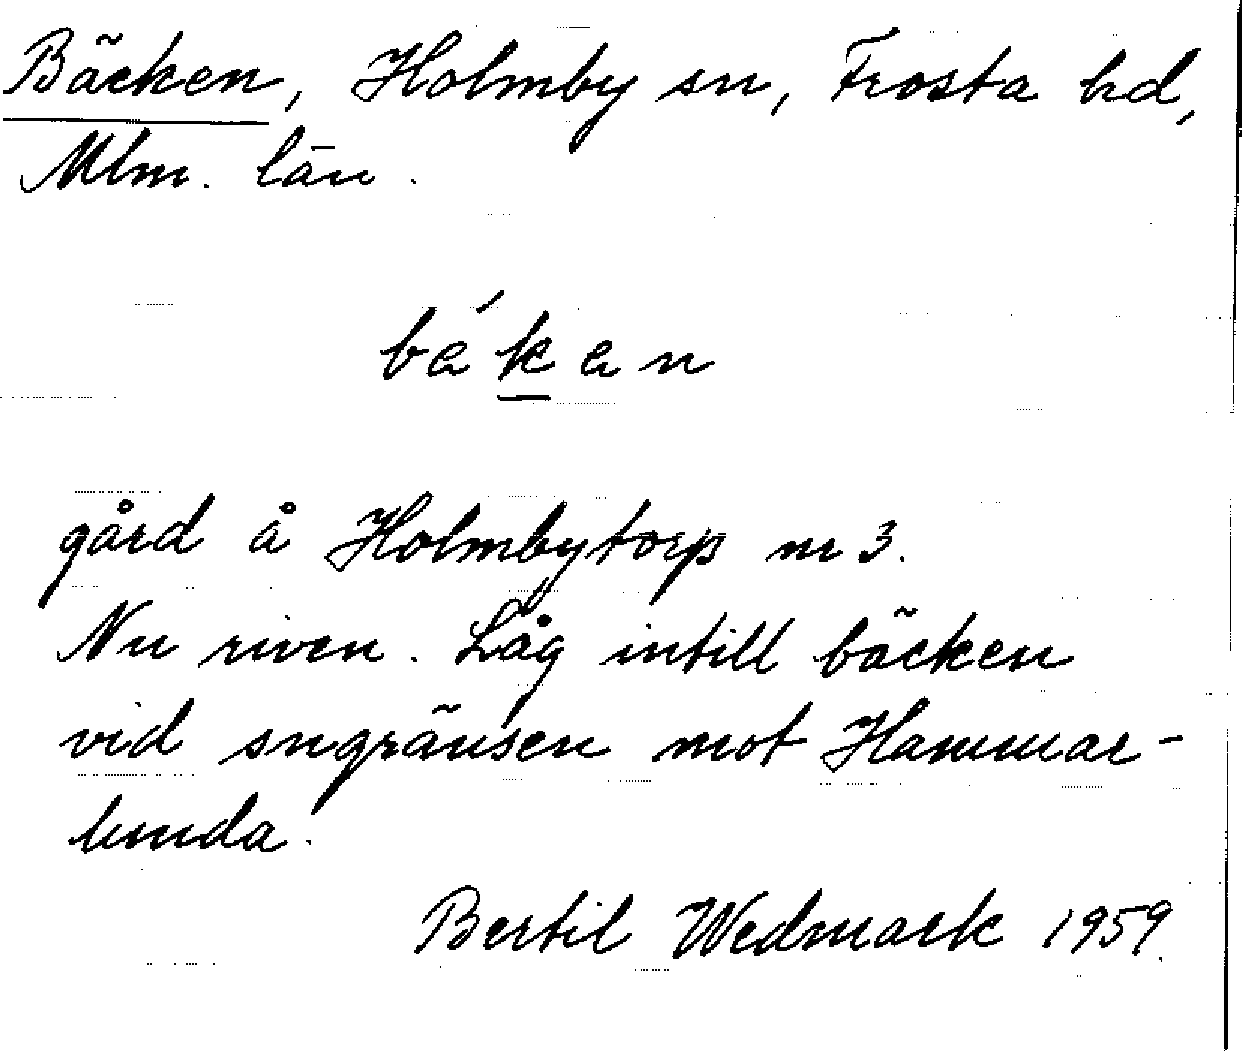 Bäcken, Holmby sn, Frosta hd,
Mlm. län.
bák̲an
gård å Holmbytorp nr 3.
Nu riven. Låg intill bäcken
vid sngränsen mot Hammar-
lunda.
Bertil Wedmark 1959.